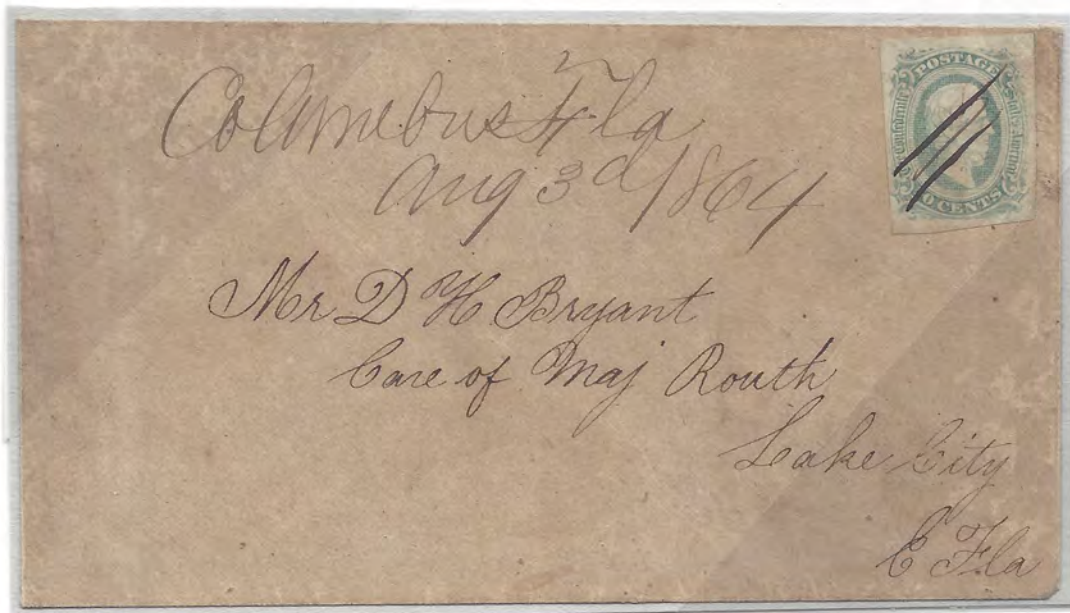 Columebus Fla
Aug 3d 1864
POSTAGE
Confederate
States America
0 CENTS
Mr D H Bryant
Care of Maj Routh
Lake City
E Fla